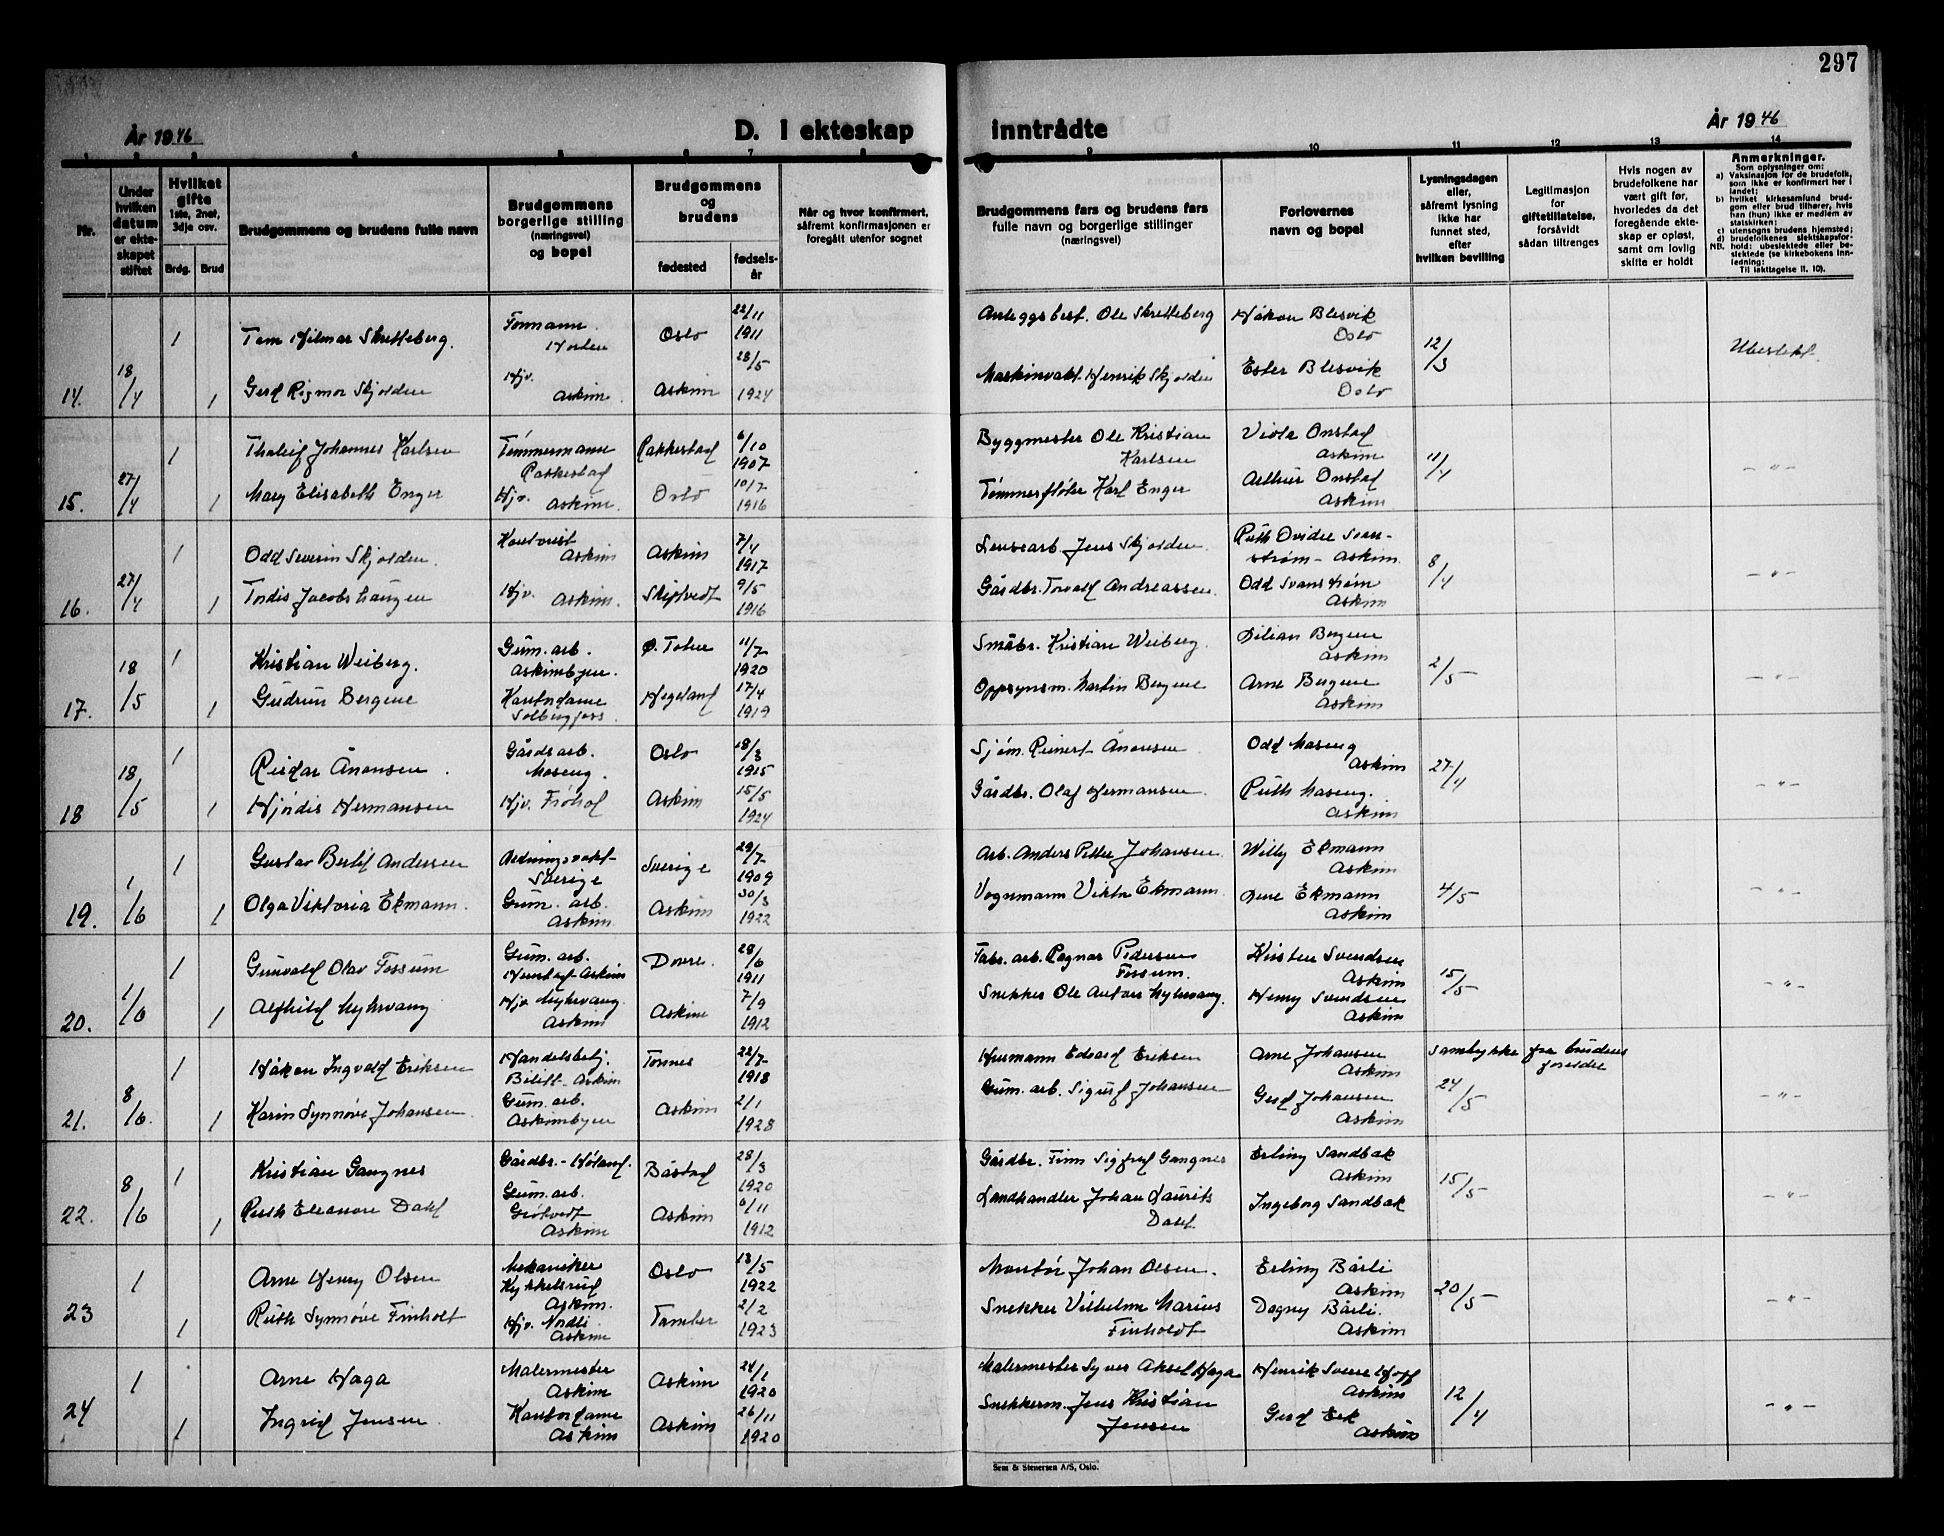 297
År 1946
D. I ekteskap inntrådte
År 1946
1 2 3 4 5 6 7 8 9 10 11 12 13 14
Nr.
Under hvilken datum er ekteskapet stiftet
Hvilket gifte
1ste, 2net, 3dje osv.
Brdg. Brud
Brudgommens og brudens fulle navn
Brudgommens borgerlige stilling (næringsvei) og bopel
Brudgommens og brudens
fødested
fødselsår
Når og hvor konfirmert, såfremt konfirmasjonen er foregått utenfor sognet
Brudgommens fars og brudens fars fulle navn og borgerlige stillinger (næringsvei)
Forlovernes navn og bopel
Lysningsdagen eller, såfremt lysning ikke har funnet sted, efter hvilken bevilling
Legitimasjon for giftetillatelse, forsåvidt sådan tiltrenges
Hvis nogen av brudefolkene har vært gift før, hvorledes da det foregående ekteskap er opløst, samt om lovlig skifte er holdt
Anmerkninger.
Som oplysninger om:
a) Vaksinasjon for de brudefolk, som ikke er konfirmert her i landet;
b) hvilket kirkesamfund brudgom eller brud tilhører, hvis han (hun) ikke er medlem av statskirken;
c) utensogns brudens hjemsted;
d) brudefolkenes slektskapsforhold: ubeslektede eller beslektede (se kirkebokens innledning:
NB. Til iakttagelse II. 10).
14. 18/4 1 Tom Hilmar Skretteberg. Formann. Horten Oslo 22/11 1911 Anleggsbest. Ole Skretteberg Håkon Blesvik Oslo 12/3 Ubeslekt.
1 Gerd Rigmor Skjolden Hjv. Askim. Askim 28/5 1924 Maskinvakt. Henrik Skjolden Ester Blesvik Oslo
15. 27/4 1 Tholeif Johannes Karlsen Tømmermann Rakkestad Rakkestad 6/10 1907 Byggmester Ole Kristian Karlsen Viola Onstad Askim 11/4 -"-
1 Mary Elisabeth Enger Hjv. Askim. Oslo 10/7 1916 Tømmerfløter Karl Enger Arthur Onstad Askim
16. 27/4 1 Odd Severin Skjolden. Kontorist Askim Askim 7/4 1917 Lensearb. Jens Skjolden. Ruth Ovidie Svanstrøm - Askim 8/4 -"-
1 Tordis Jacobshaugen Hjv. Askim. Skiptvedt 9/5 1916 Gårdbr. Torvald Andreassen. Odd Svanstrøm Askim
17. 18/5 1 Kristian Weiberg. Gum. arb. Askimbyen. Ø. Toten 11/7 1920 Småbr. Kristian Weiberg. Lilian Bergene Askim 2/5 -"-
1 Gudrun Bergene Kontordame Solbergfoss. Hegeland 17/4 1919 Oppsynsm. Martin Bergene Arne Bergene Askim
18 18/5 1 Reidar Ånonsen. Gårdsarb. Moseng. Oslo 18/3 1915 Sjøm. Reinert Ånonsen Odd Moseng Askim 27/4 -"-
1 Hjørdis Hermansen Hjv. Frøhol Askim 15/5 1924 Gårdbr. Olaf Hermansen. Ruth Moseng. Askim
19. 1/6 1 Gustav Bertil Andersen Sverige Sverige 29/7 1909 Arb. Anders Petter Johansen. Willy Ekmann Askim 4/5 -"-
1 Olga Viktoria Ekmann. Gum. arb. Askim Askim 30/3 1922 Vognmann Viktor Ekmann. Ekmann Askim
20. 1/6 1 Gunvald Olav Fossum Gum. arb. Askim Dovre. 28/6 1911 Fabr. arb. Ragnar Pedersen Fossum. Kirsten Svendsen Askim 15/5 -"-
1 Alfhild Myhrvang Hjv. Myhrvang. Askim Askim 7/9 1912 Snekker Ole Anton Myhrvang. Henry Svendsen Askim
21. 8/6. 1 Håkon Ingvald Eriksen Handelsbetj. Askim Tornes 22/7 1918 Edvard Eriksen Arne Johansen Askim Samtykke fra brudens foreldre 24/5 -"-
1 Karin Synnøve Johansen. Gum. arb. Askimbyen Askim 2/1 1928 Gum. arb. Sigurd Johansen Gerd Johansen Askim
22. 8/6 1 Kristian Gangnes Gårdbr. - Høland. Båstad 28/3 1920 Gårdbr. Finn Sigfred Gangnes Erling Sandbæk Askim 15/5 -"-
1 Ruth Eleanore Dahl Gum. arb. Grøtvedt Askim Askim 6/11 1912 Landhandler Johan Laurits Dahl Ingeborg Sandbæk
23 1 Arne Henry Olsen Mekaniker Kykkelsrud Askim. Oslo 13/5 1922 Montør Johan Olsen. Erling Bårli Askim 20/5 -"-
1 Ruth Synnøve Finholt Hjv. Nordli Askim Tomter 2/2 1923 Snekker Vilhelm Marius Finholdt Dagny Bårli. Askim
24 1 Arne Haga Malermester Askim Askim 24/1 1920 Malermester Syver Aksel Haga Henrik Sverre Hoff Askim 12/4 -"-
1 Ingrid Jensen Kontordame Askim Askim 26/11 1920 Snekkerm. Jens Kristian Jensen Gerd Eek Askim
Sem & Stenersen A/S, Oslo.